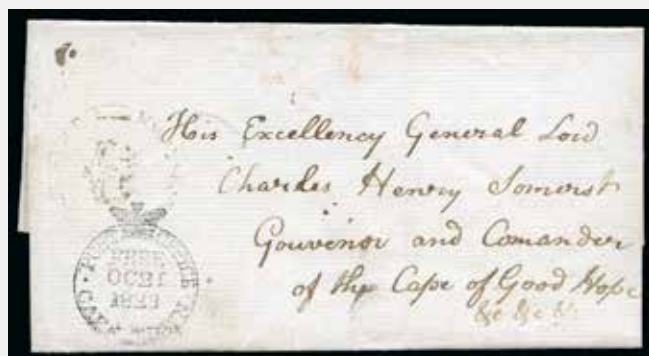 His Excellency General Lord
Charles Henry Somerst
Gouvenor and Comander
of the Cape of Good Hope
&c &c &c
POST OFFICE
FREE
OC21
CAPE TOWN